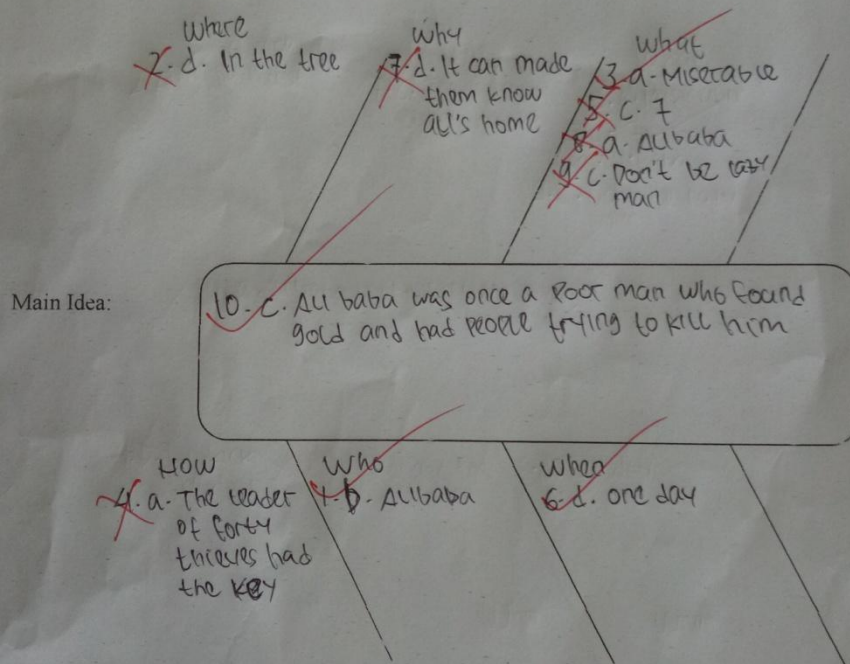 Where
2. d. In the tree
Why
7. d. It can made
them know
ali's home
What
3. a. Miserable
5. c. 7
8. a. Alibaba
9. c. Don't be lazy
man
Main Idea:
10. c. Ali baba was once a poor man who found
gold and had people trying to kill him
How
4. a. The leader
of forty
thieves had
the key
Who
1. b. Alibaba
When
6. d. one day